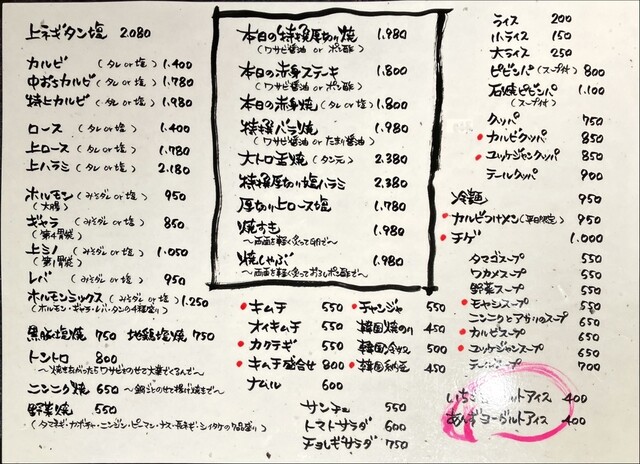 上ネギタン塩 2.080
カルビ (タレor塩) 1.400
中おちカルビ (タレor塩) 1.780
特上カルビ (タレor塩) 1.980
ロース (タレor塩) 1.400
上ロース (タレor塩) 1.780
上ハラミ (タレor塩) 2.180
ホルモン (みそダレor塩) 950
(大腸)
ギャラ (みそダレor塩) 850
(第4胃袋)
上ミノ (みそダレor塩) 1.050
(第1胃袋)
レバ (みそダレor塩) 950
ホルモンミックス (みそダレor塩) 1.250
(ホルモン・ギャラ・レバ・タンの4種盛り)
黒豚塩焼 750 地鶏塩焼 750
トントロ 800
〜焼きあがったらワサビをのせて大葉でくるんで〜
ニンニク焼 650 〜鍋ごとのせて揚げ焼きで〜
野菜焼 550
(タマネギ・カボチャ・ニンジン・ピーマン・ナス・長ネギ・シイタケの7品盛り)
本日の特撰厚切り焼 1.980
(ワサビ醤油 or ポン酢)
本日の赤身ステーキ 1.800
(ワサビ醤油 or ポン酢)
本日の赤身焼 (タレor塩) 1.800
特撰バラ焼 1.980
(ワサビ醤油 or たまり醤油)
大トロ玉焼 (タン元) 2.380
特撰厚切り塩ハラミ 2.380
厚切り上ロース塩 1.780
焼すき 1.980
〜両面を軽く炙って卵で〜
焼しゃぶ 1.980
〜両面を軽く炙っておろしポン酢で〜
キムチ 550
オイキムチ 550
カクテギ 550
キムチ盛合せ 800
ナムル 600
チャンジャ 550
韓国焼のり 450
韓国冷奴 500
韓国納豆 450
サンチュ 550
トマトサラダ 600
チョレギサラダ 750
ライス 200
小ライス 150
大ライス 250
ビビンバ (スープ付) 800
石焼ビビンバ 1.100
(スープ付)
クッパ 750
カルビクッパ 850
ユッケジャンクッパ 850
テールクッパ 900
冷麺 950
カルビつけメン (平日限定) 950
チゲ 1.000
タマゴスープ 550
ワカメスープ 550
野菜スープ 550
モヤシスープ 550
ニンニクとアサリのスープ 650
カルビスープ 650
ユッケジャンスープ 650
テールスープ 700
いちごヨーグルトアイス 400
あんずヨーグルトアイス 400